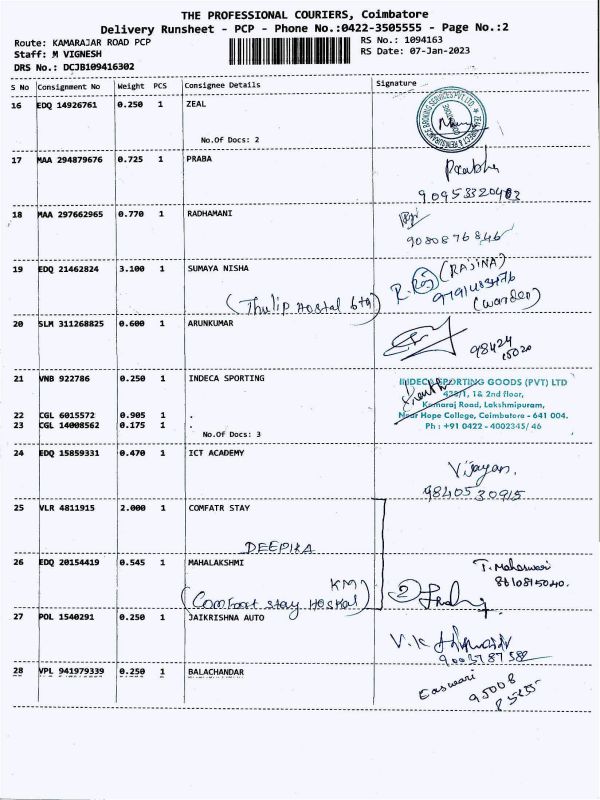 THE PROFESSIONAL COURIERS, Coimbatore
Delivery Runsheet - PCP - Phone No.:0422-3505555 - Page No.:2
Route: KAMARAJAR ROAD PCP
RS No.: 1094163
Staff: M VIGNESH
RS Date: 07-Jan-2023
DRS No.: DCJB109416302
S No Consignment No Weight PCS Consignee Details Signature
16 EDQ 14926761 0.250 1 ZEAL
No.Of Docs: 2
17 MAA 294879676 0.725 1 PRABA
Prabha
18 MAA 297662965 0.770 1 RADHAMANI
9080876846
19 EDQ 21462824 3.100 1 SUMAYA NISHA
(RAJINA)
(Thulip Hostal
(warden)
20 SLM 311268825 0.600 1 ARUNKUMAR
98424
21 VNB 922786 0.250 1 INDECA SPORTING
INDECA SPORTING GOODS (PVT) LTD
1& 2nd floor,
Kamaraj Road, Lakshmipuram,
Near Hope College, Coimbatore - 641 004.
Ph : +91 0422 - 4002345/ 46
22 CGL 6015572 0.905 1 .
23 CGL 14008562 0.175 1 .
No.Of Docs: 3
24 EDQ 15859331 0.470 1 ICT ACADEMY
Vijayan.
9840530915
25 VLR 4811915 2.000 1 COMFATR STAY
DEEPIKA
26 EDQ 20154419 0.545 1 MAHALAKSHMI
T. Maheswari
8610815040.
KM
(Comfoart stay Hostal)
2
27 POL 1540291 0.250 1 JAIKRISHNA AUTO
V.K
9003787582
28 VPL 941979339 0.250 1 BALACHANDAR
Easwari
95008